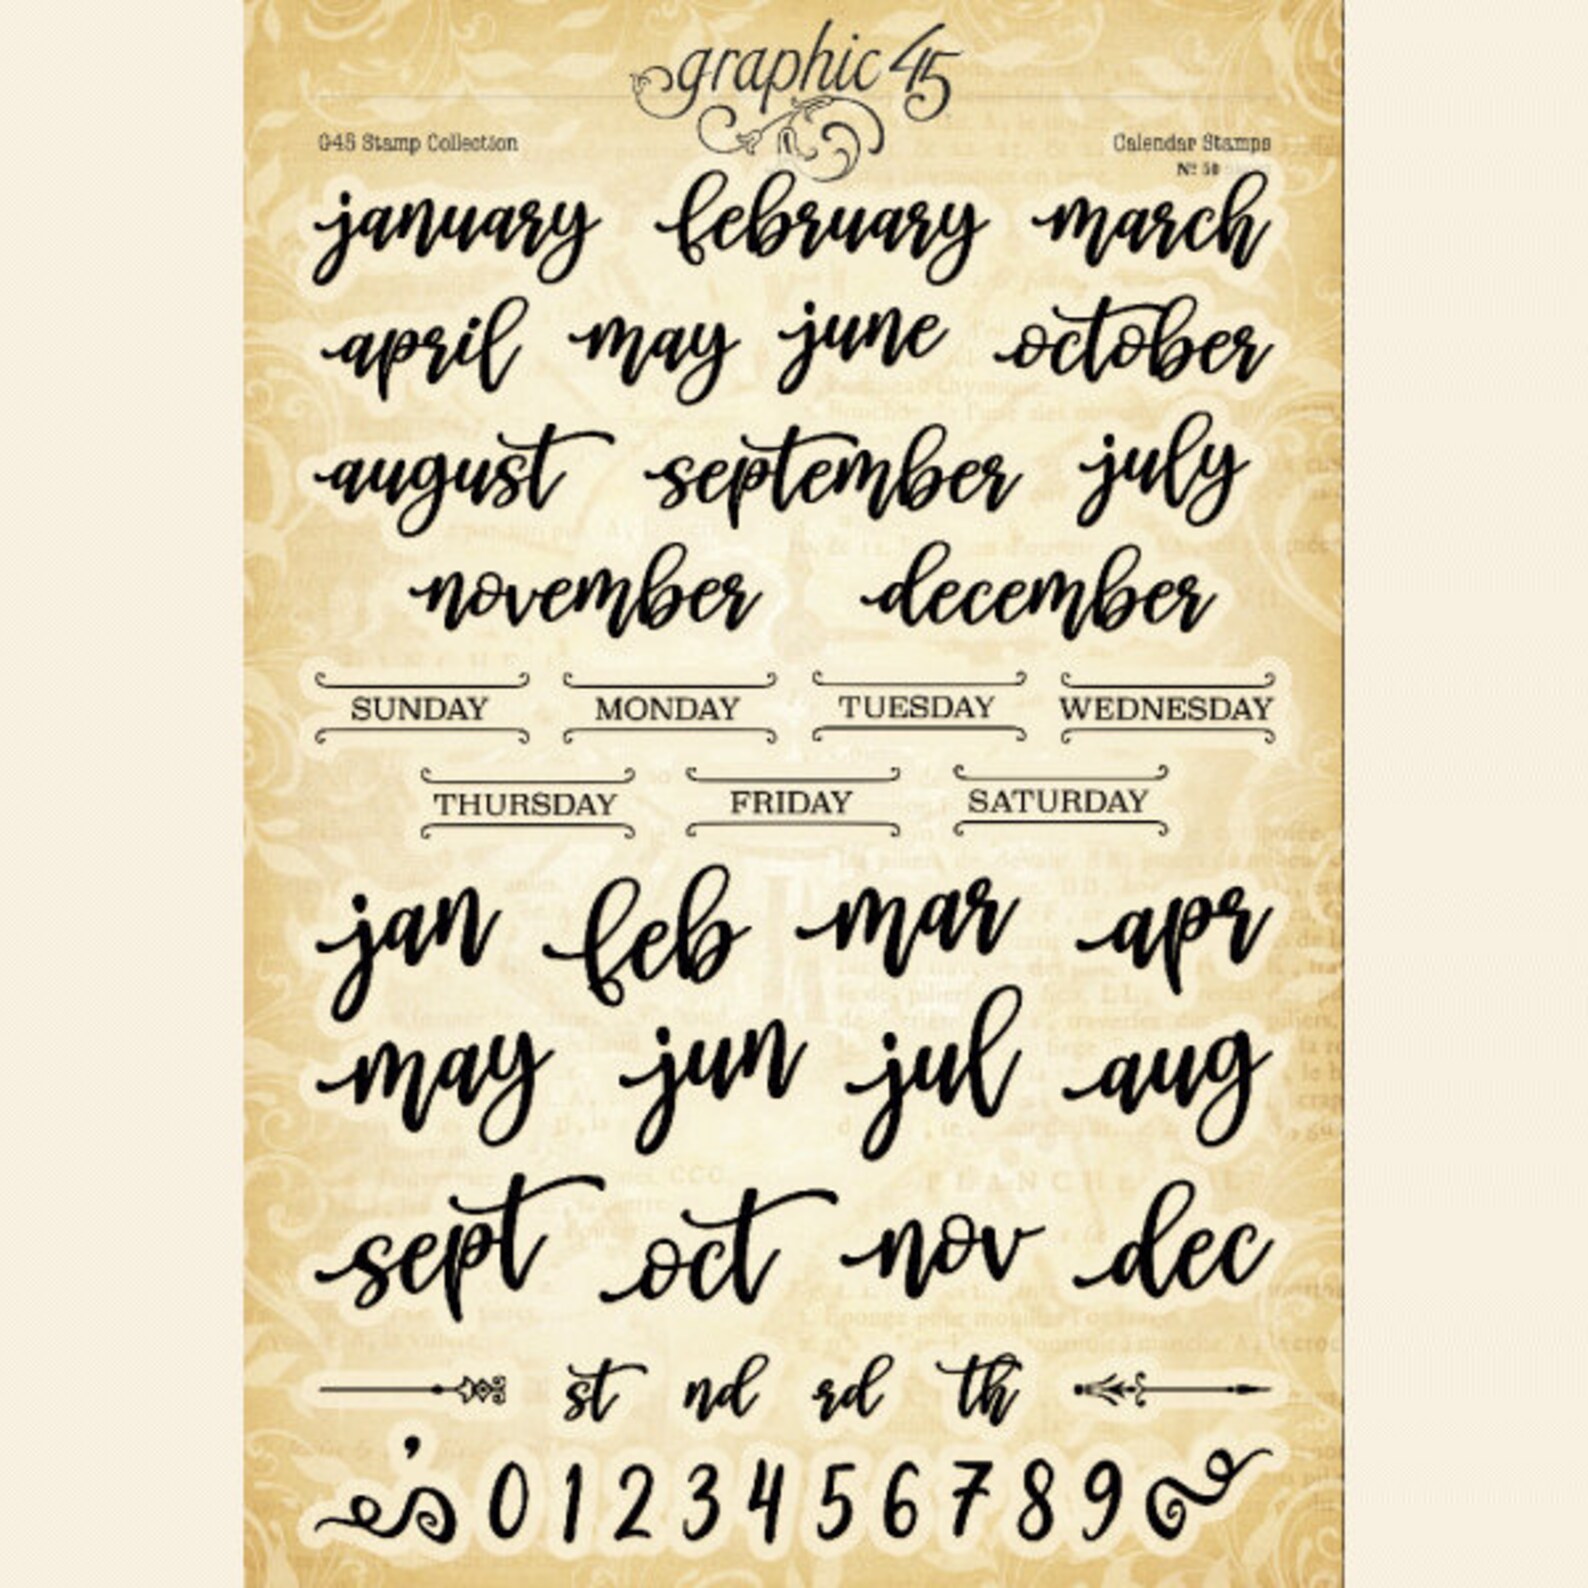 graphic 45
G45 Stamp Collection
Calendar Stamps
Nº 50
january february march
april may june october
august september july
november december
SUNDAY MONDAY TUESDAY WEDNESDAY
THURSDAY FRIDAY SATURDAY
jan feb mar apr
may jun jul aug
sept oct nov dec
st nd rd th
' 0 1 2 3 4 5 6 7 8 9